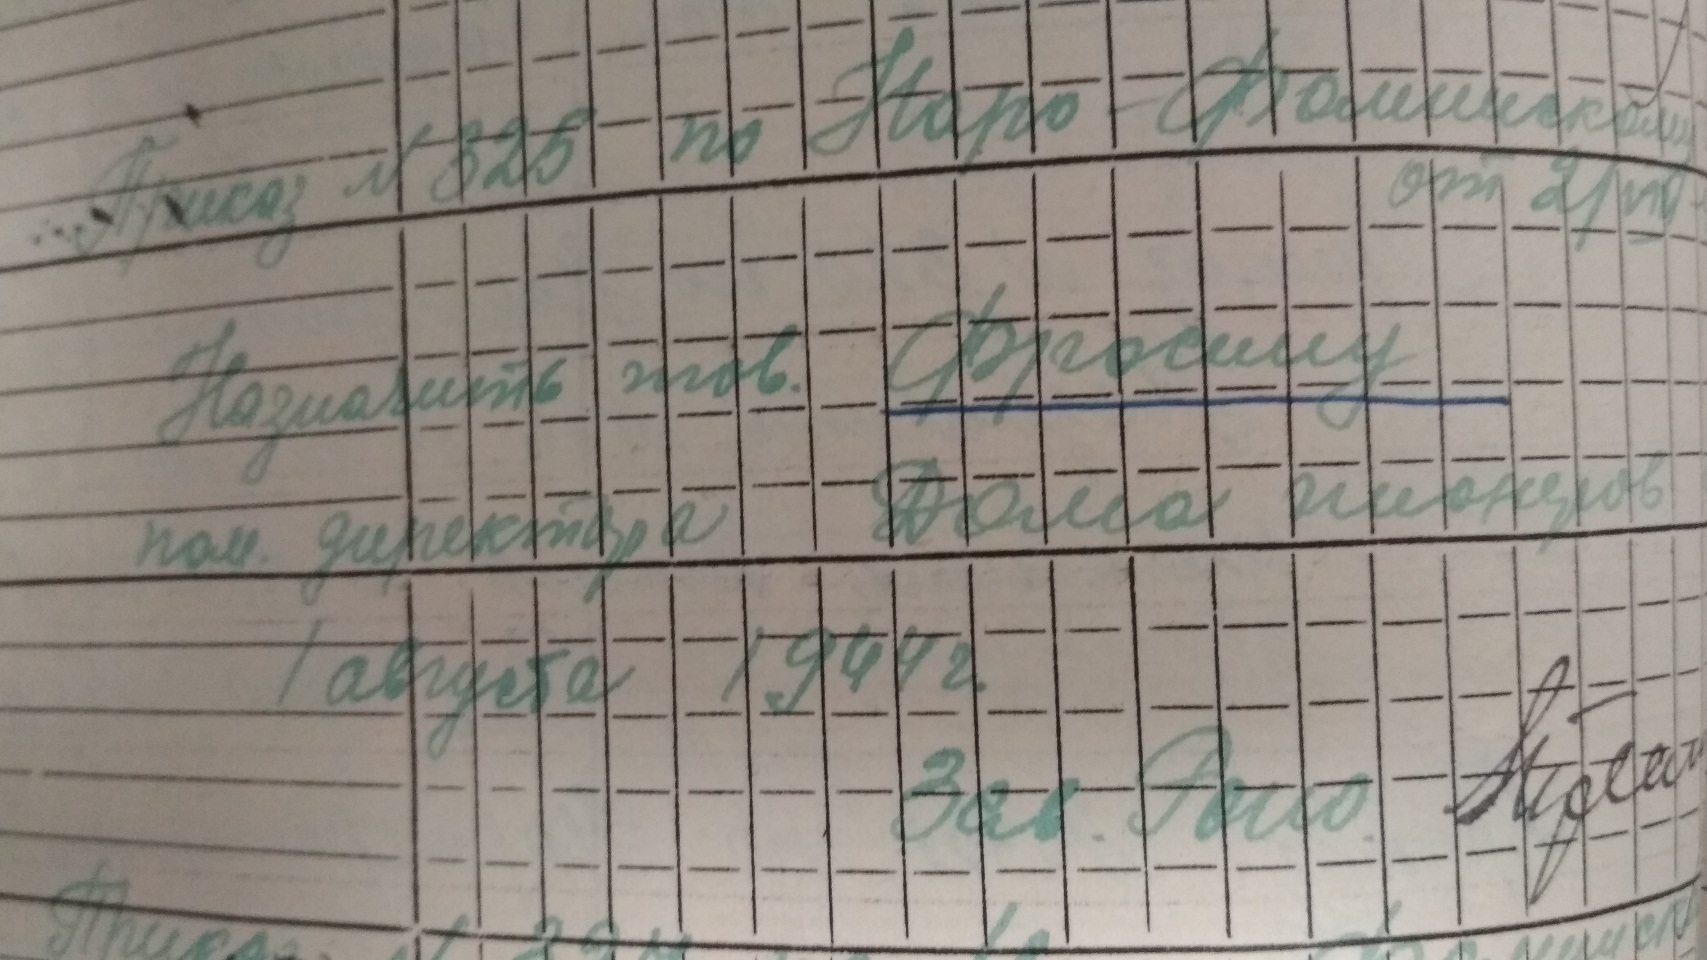 Приказ № 325 по Наро-Фоминскому
от 21/VII-
Назначить тов. Фросину
пом. директора Дома пионеров
1 августа 1944 г.
Зав. Роно.
Приказ №